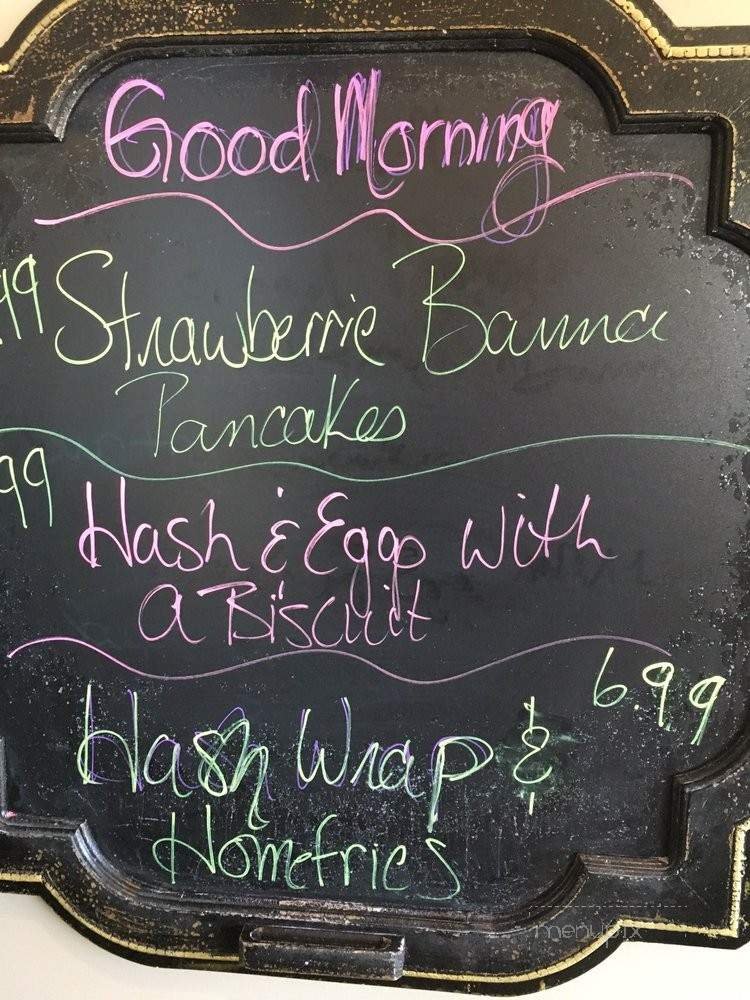 Good Morning
.99 Strawberrie Banna
Pancakes
99
Hash & Eggs with
a Biscuit
6.99
Hash Wrap &
Homefries
menupix